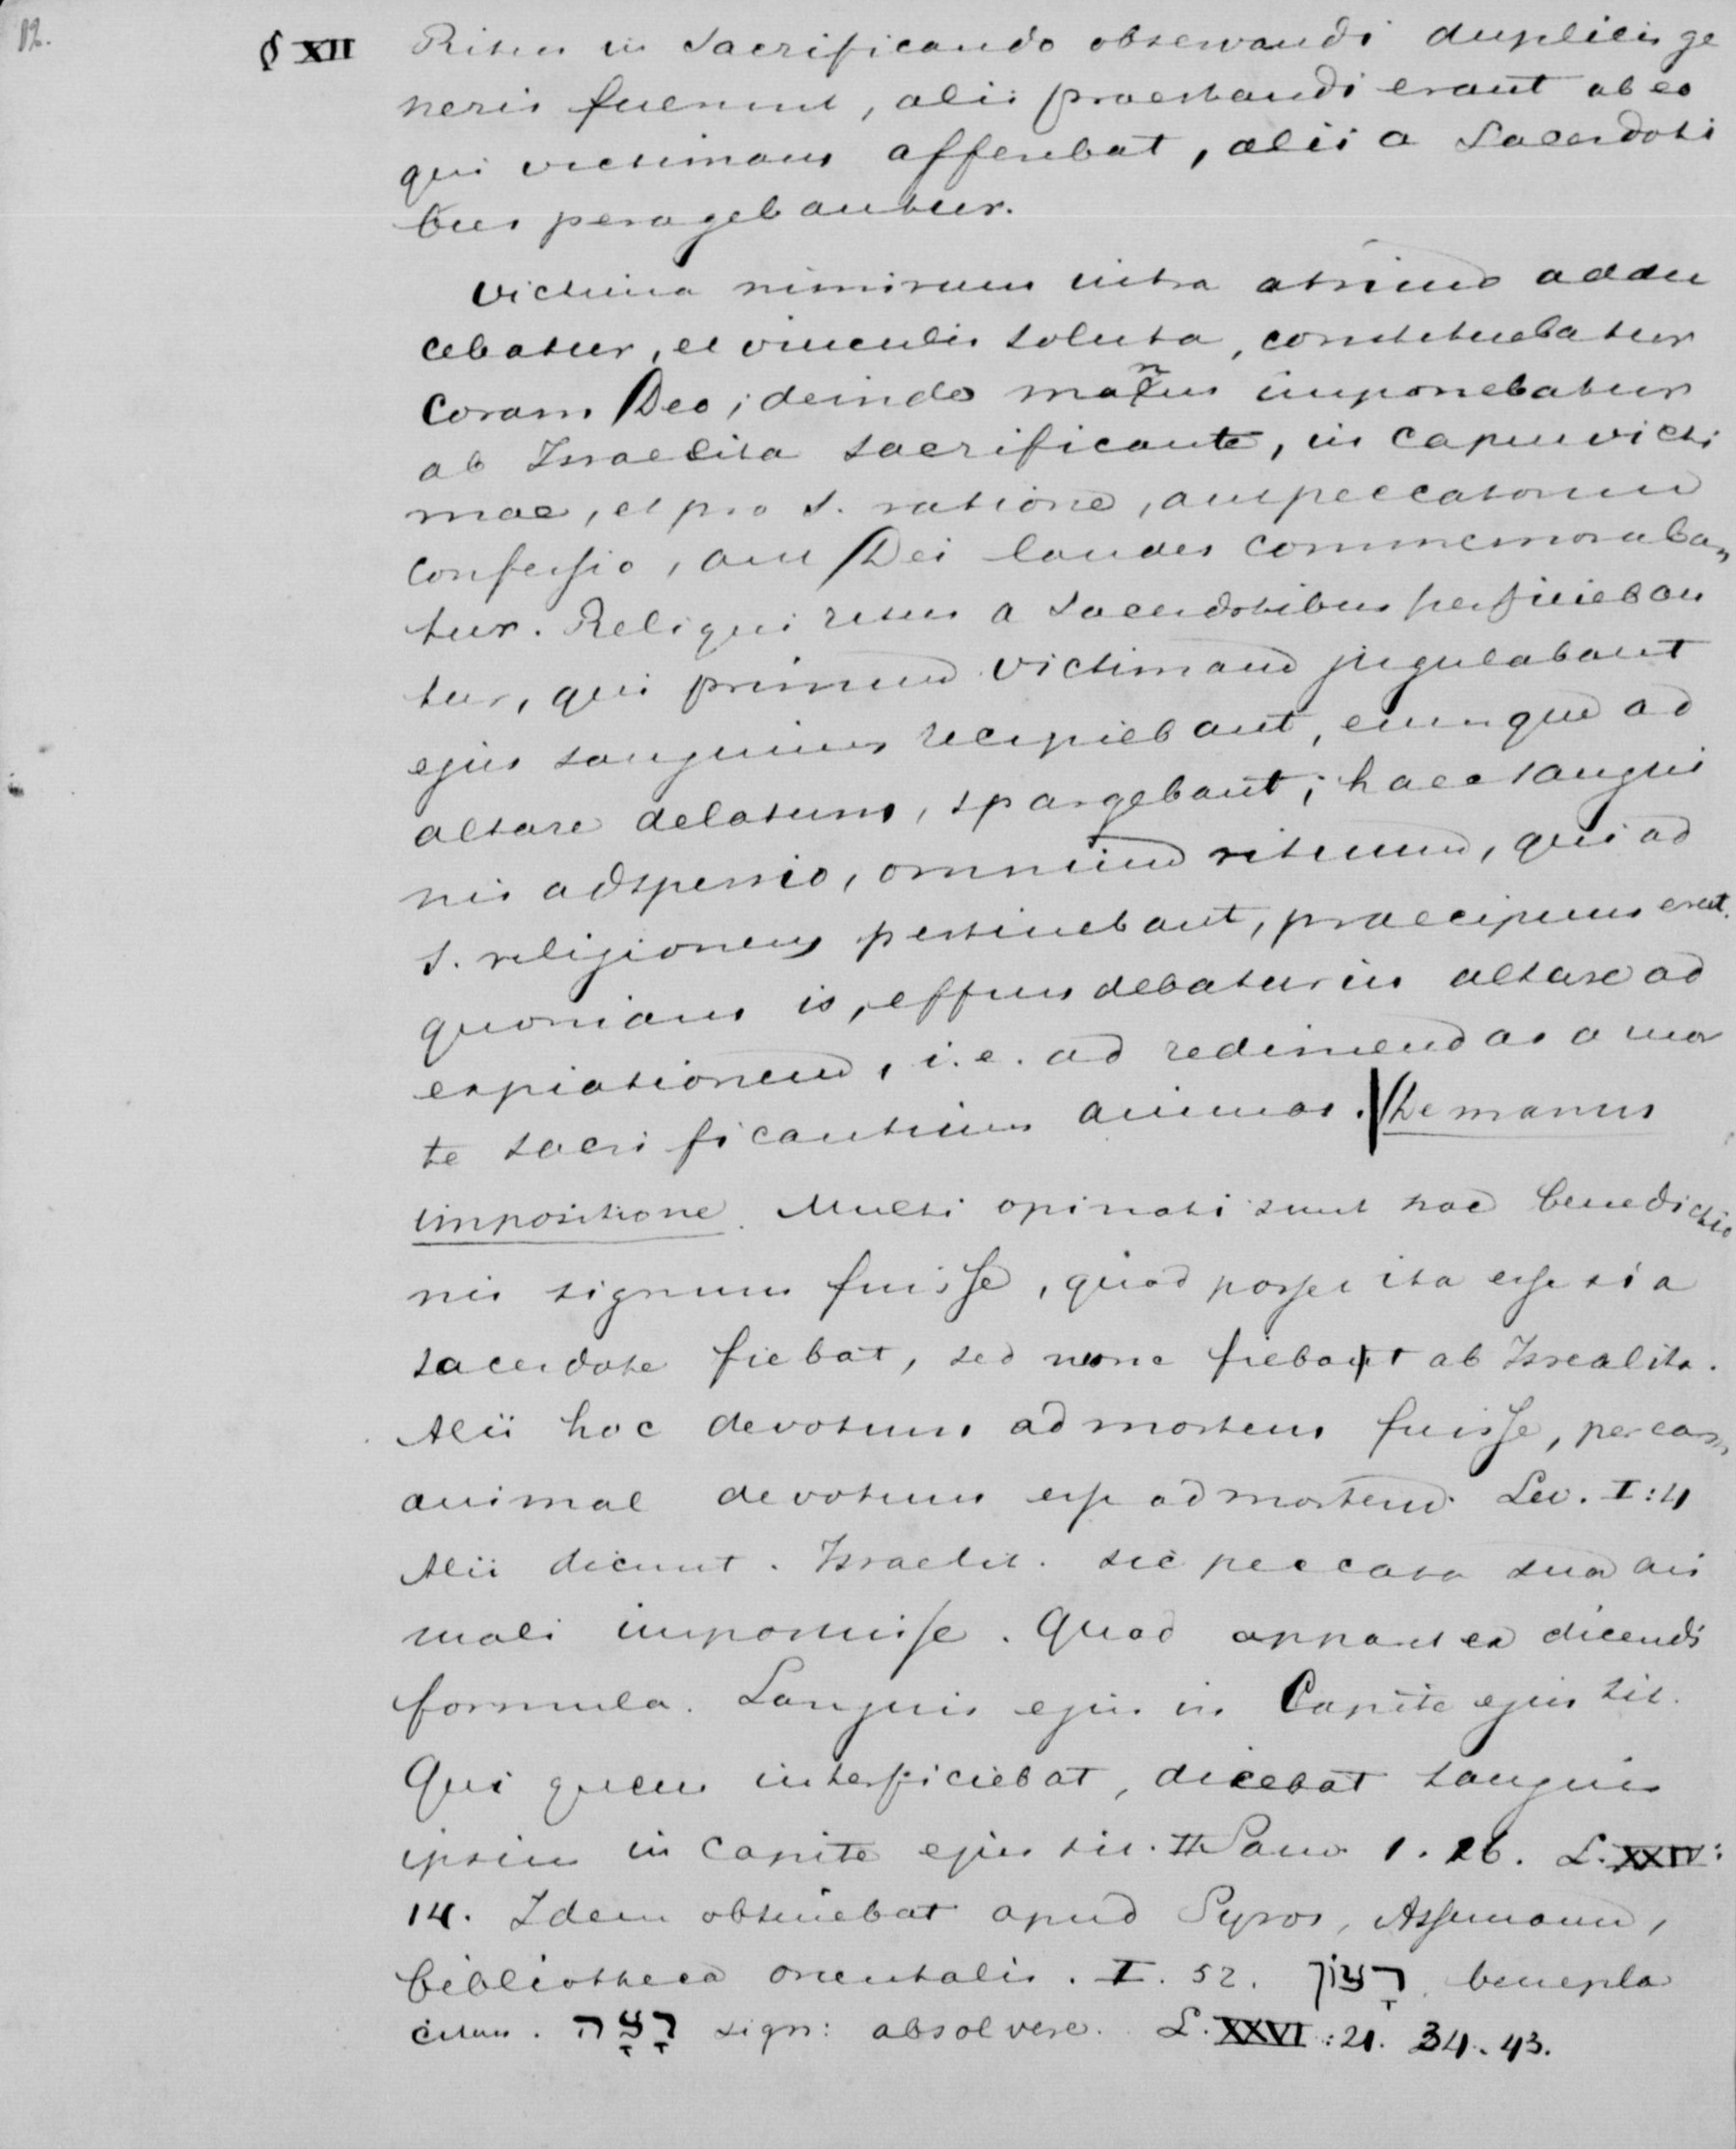 12.
§ XII Ritus in Sacrificando observandi duplicis ge
neris fuerunt, alii praestandi erant ab eo
qui victimam afferebat, alii a Sacerdoti
bus peragebantur.
Victima nimirum intra atrium addu
cebatur, et vinculis soluta, constituebatur
Coram Deo; deinde manus imponebatur
ab Israelita sacrificante, in caput victi
mae, et pro s. ratione, aut peccatorum
confessio, aut Dei laudes commemoraban
tur. Reliqui ritus a Sacerdotibus perficieban
tur, qui primum victimam jugulabant
ejus sanguinem recipiebant, eumque ad
altare delatum, spargebant; haec sangui
nis adspersio, omnium rituum, qui ad
s. religionem pertinebant, praecipuus erat.
quoniam is, effundebatur in altare ad
expiationem, i.e. ad redimendas a mor
te sacrificantium animas. | De manus
impositione. Multi opinati sunt hoc benedictio
nis signum fuisse, quod posset ita esse si a
sacerdote fiebat, sed nonne fiebat ab Isrealita.
Alii hoc devotum ad mortem fuisse, per eam
animal devotum esse ad mortem. Lev. I:4
Alii dicunt. Israelit. sic peccata sua ani
mali imposuisse. Quod apparet ex dicendi
formula. Sanguis ejus in Capite ejus sit.
Qui quem interficiebat, dicebat sanguis
ipsius in Capite ejus sit. II Sam 1. 16. L. XXIV:
14. Idem obtinebat apud Syros, Assemann,
bibliotheca orientalis. I. 52. רָצוֹן. benepla
citum. רָצָה sign: absolvere. L. XXVI:21. 34. 43.